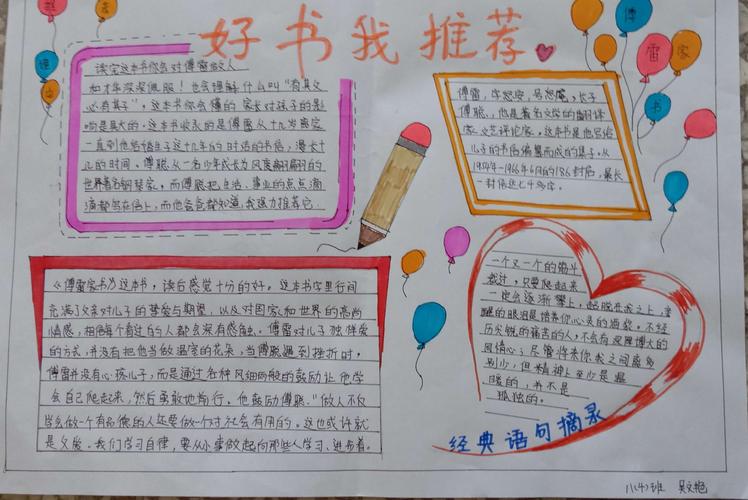 好书我推荐
读
走
进
傅
雷
家
书
读完这本书你会对傅雷做人
如才华深深佩服！也会理解什么叫“有其父
必有其子”，这本书你会懂的家长对孩子的影
响是莫大的。这本书收录的是傅雷从十几岁离家
一直到他名扬乐子这十几年的时话的书信，漫长十
几的时间。傅聪从一名少年成长为风度翩翩翩的
世界著名钢琴家。而傅聪把生活、事业的点点滴
滴都写在信上，而他爸爸都知道，我强力推荐它
傅雷，字怒安，号怒庵，长子
傅聪，他是著名文学的翻译
家、文艺评论家。这本书是他写给
儿子的书信编纂而成的集子。从
1954年-1966年6月的186封信，最长
一封信达七千多字。
《傅雷家书》这本书，读后感觉十分的好。这本书字里行间
充满了父亲对儿子的挚爱与期望，以及对国家和世界的高尚
情感，相信每个看过的人都会深有感触。傅雷对儿子独伴爱
的方式，并没有把他当做温室的花朵，当傅聪遇到挫折时，
傅雷并没有心孩儿子，而是通过各种风细雨般的鼓励让他学
会自己爬起来，然后勇敢地前行。他鼓励傅聪：“做人不仅
学会做一个有品德的人还要做一个对社会有用的。这也或许就
是父爱。我们学习自律，要从小事做起向那些人学习、进步着。
一个又一个的筋斗
栽过，只要爬起来
一定会逐渐攀上，超脱在我之上，
醒的眼泪是培养你心灵的酒浆。不经
历尖锐的痛苦的人，不会有深厚博大的
同情心；尽管将来你我之间离多
别少，但精神上至少是温
暖的，并不是
孤独的。
经典语句摘录
八(4)班 吴文艳